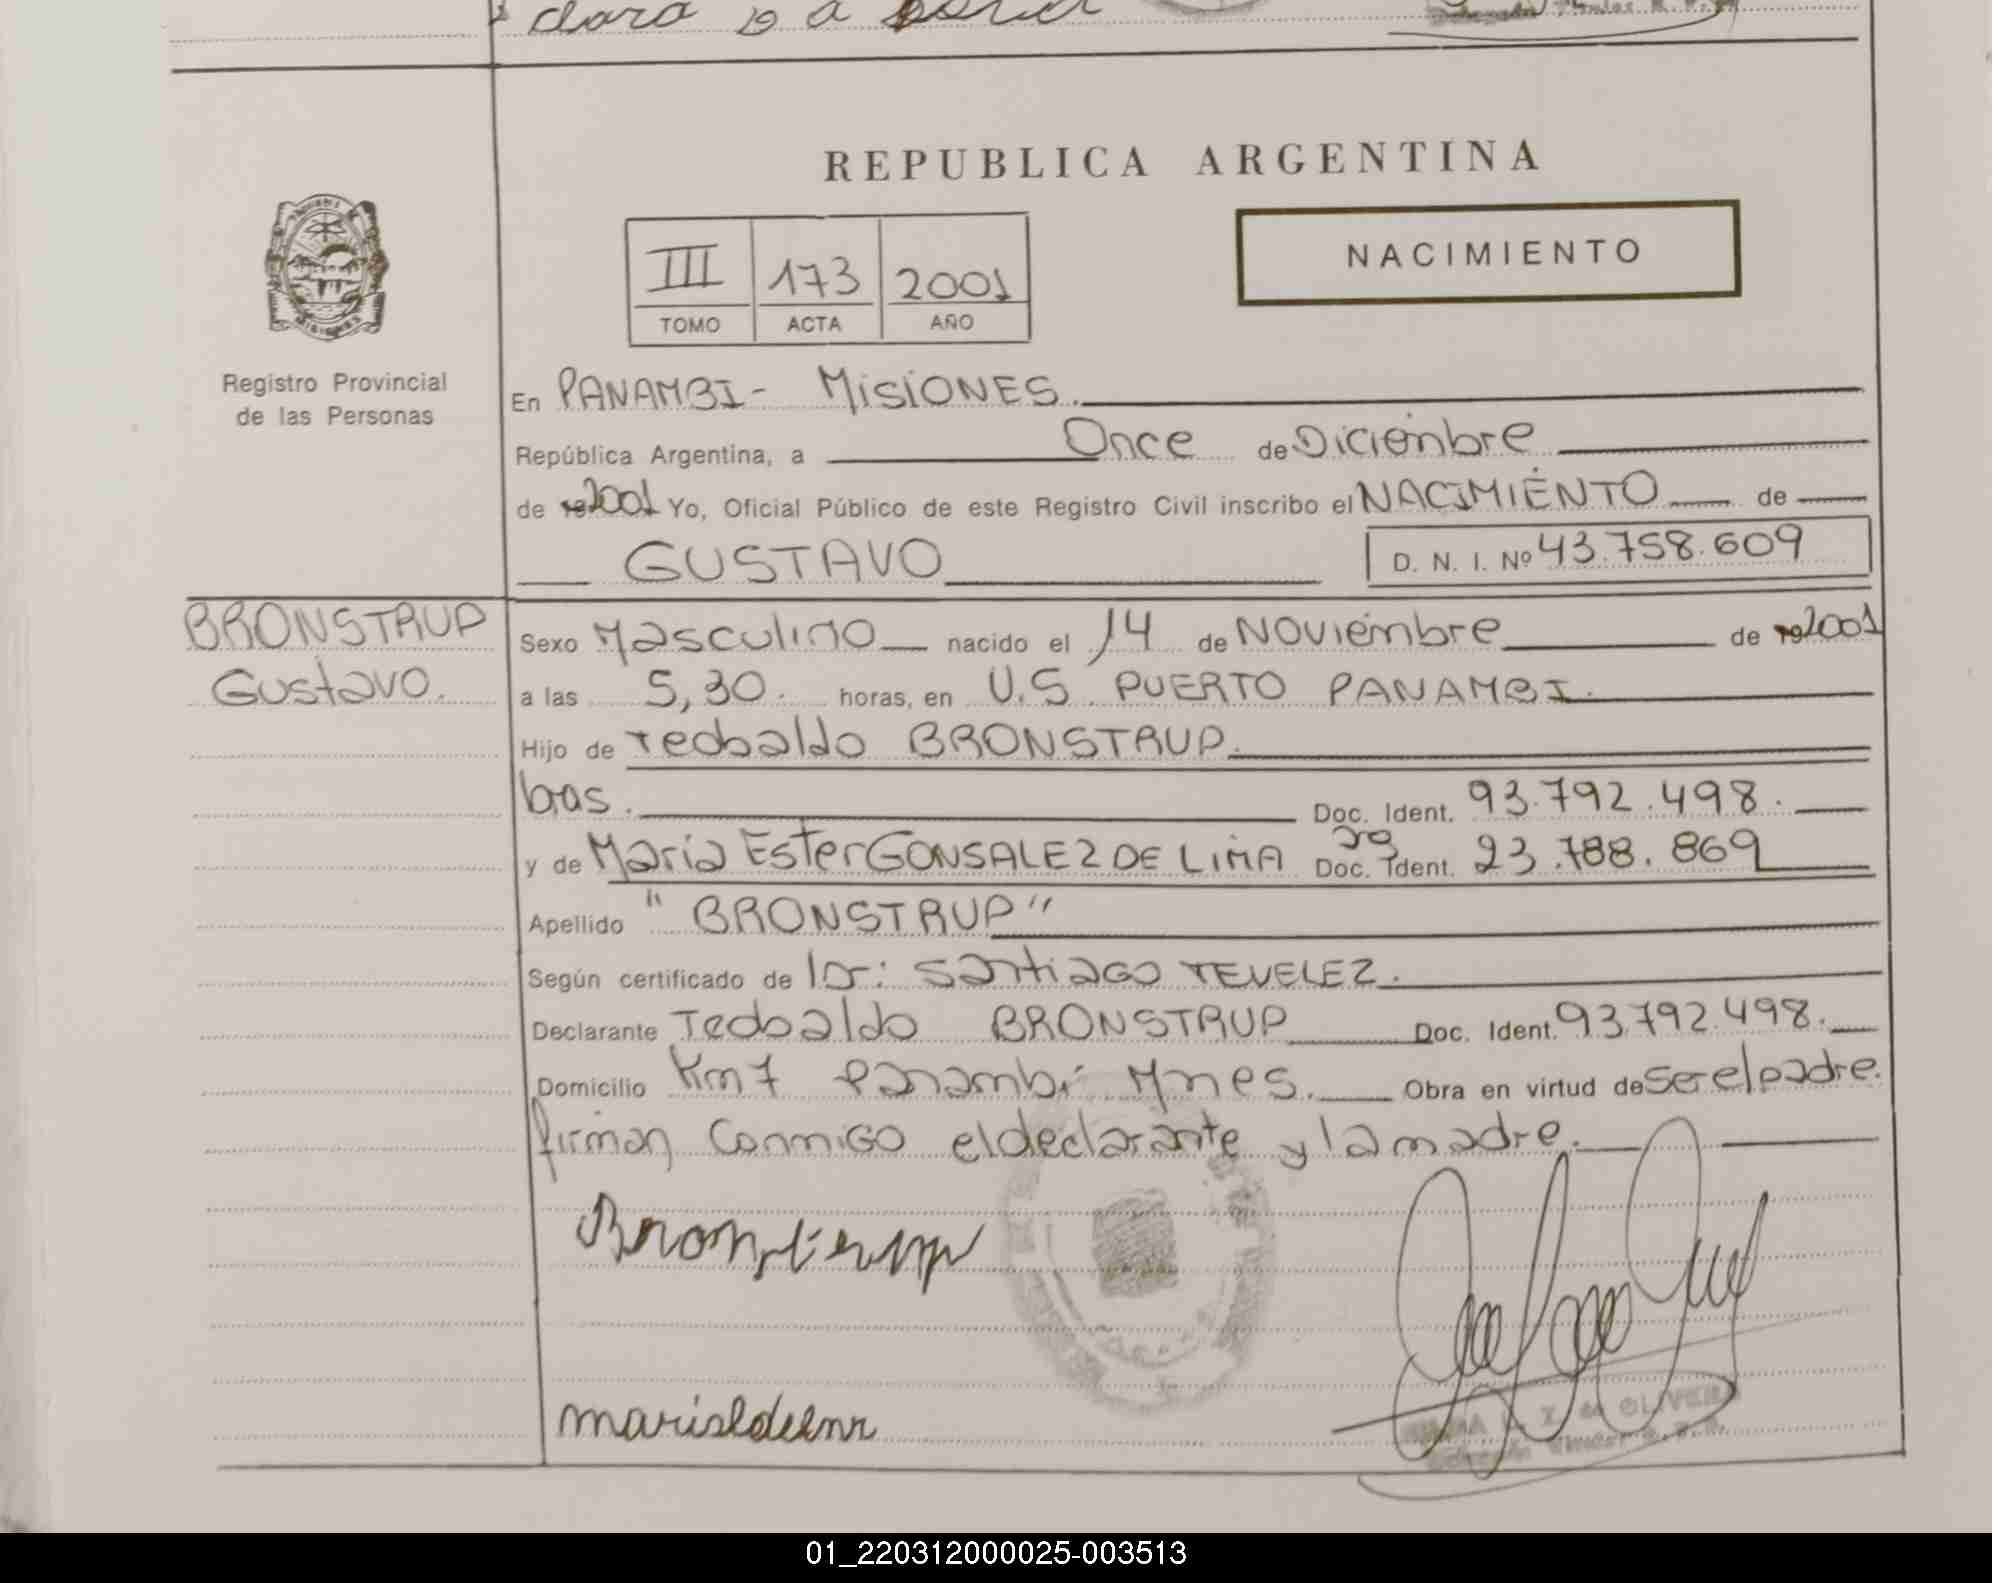 clara
REPUBLICA ARGENTINA
NACIMIENTO
III 173 2001
TOMO ACTA AÑO
MISIONES
Registro Provincial
de las Personas
En PANAMBI- MISIONES.
República Argentina, a Once de Diciembre
de 192001 Yo, Oficial Público de este Registro Civil inscribo el NACIMIENTO de
GUSTAVO D. N. I. Nº 43.758.609
BRONSTRUP
Gustavo.
Sexo Masculino nacido el 14 de Noviembre de 192001
a las 5,30. horas, en U.S. PUERTO PANAMBI.
Hijo de Teobaldo BRONSTRUP.
bras. Doc. Ident. 93.792.498.
y de Maria Ester GONSALEZ DE LIMA Doc. Ident. 23.788.869
Apellido "BRONSTRUP"
Según certificado de Dr: Santiago TEVELEZ.
Declarante Teobaldo BRONSTRUP Doc. Ident. 93.792.498.
Domicilio Km 7 Panambi Mnes. Obra en virtud de ser el padre.
firman conmigo el declarante y la madre.
Bronstrup
de OLIVERA
01_220312000025-003513